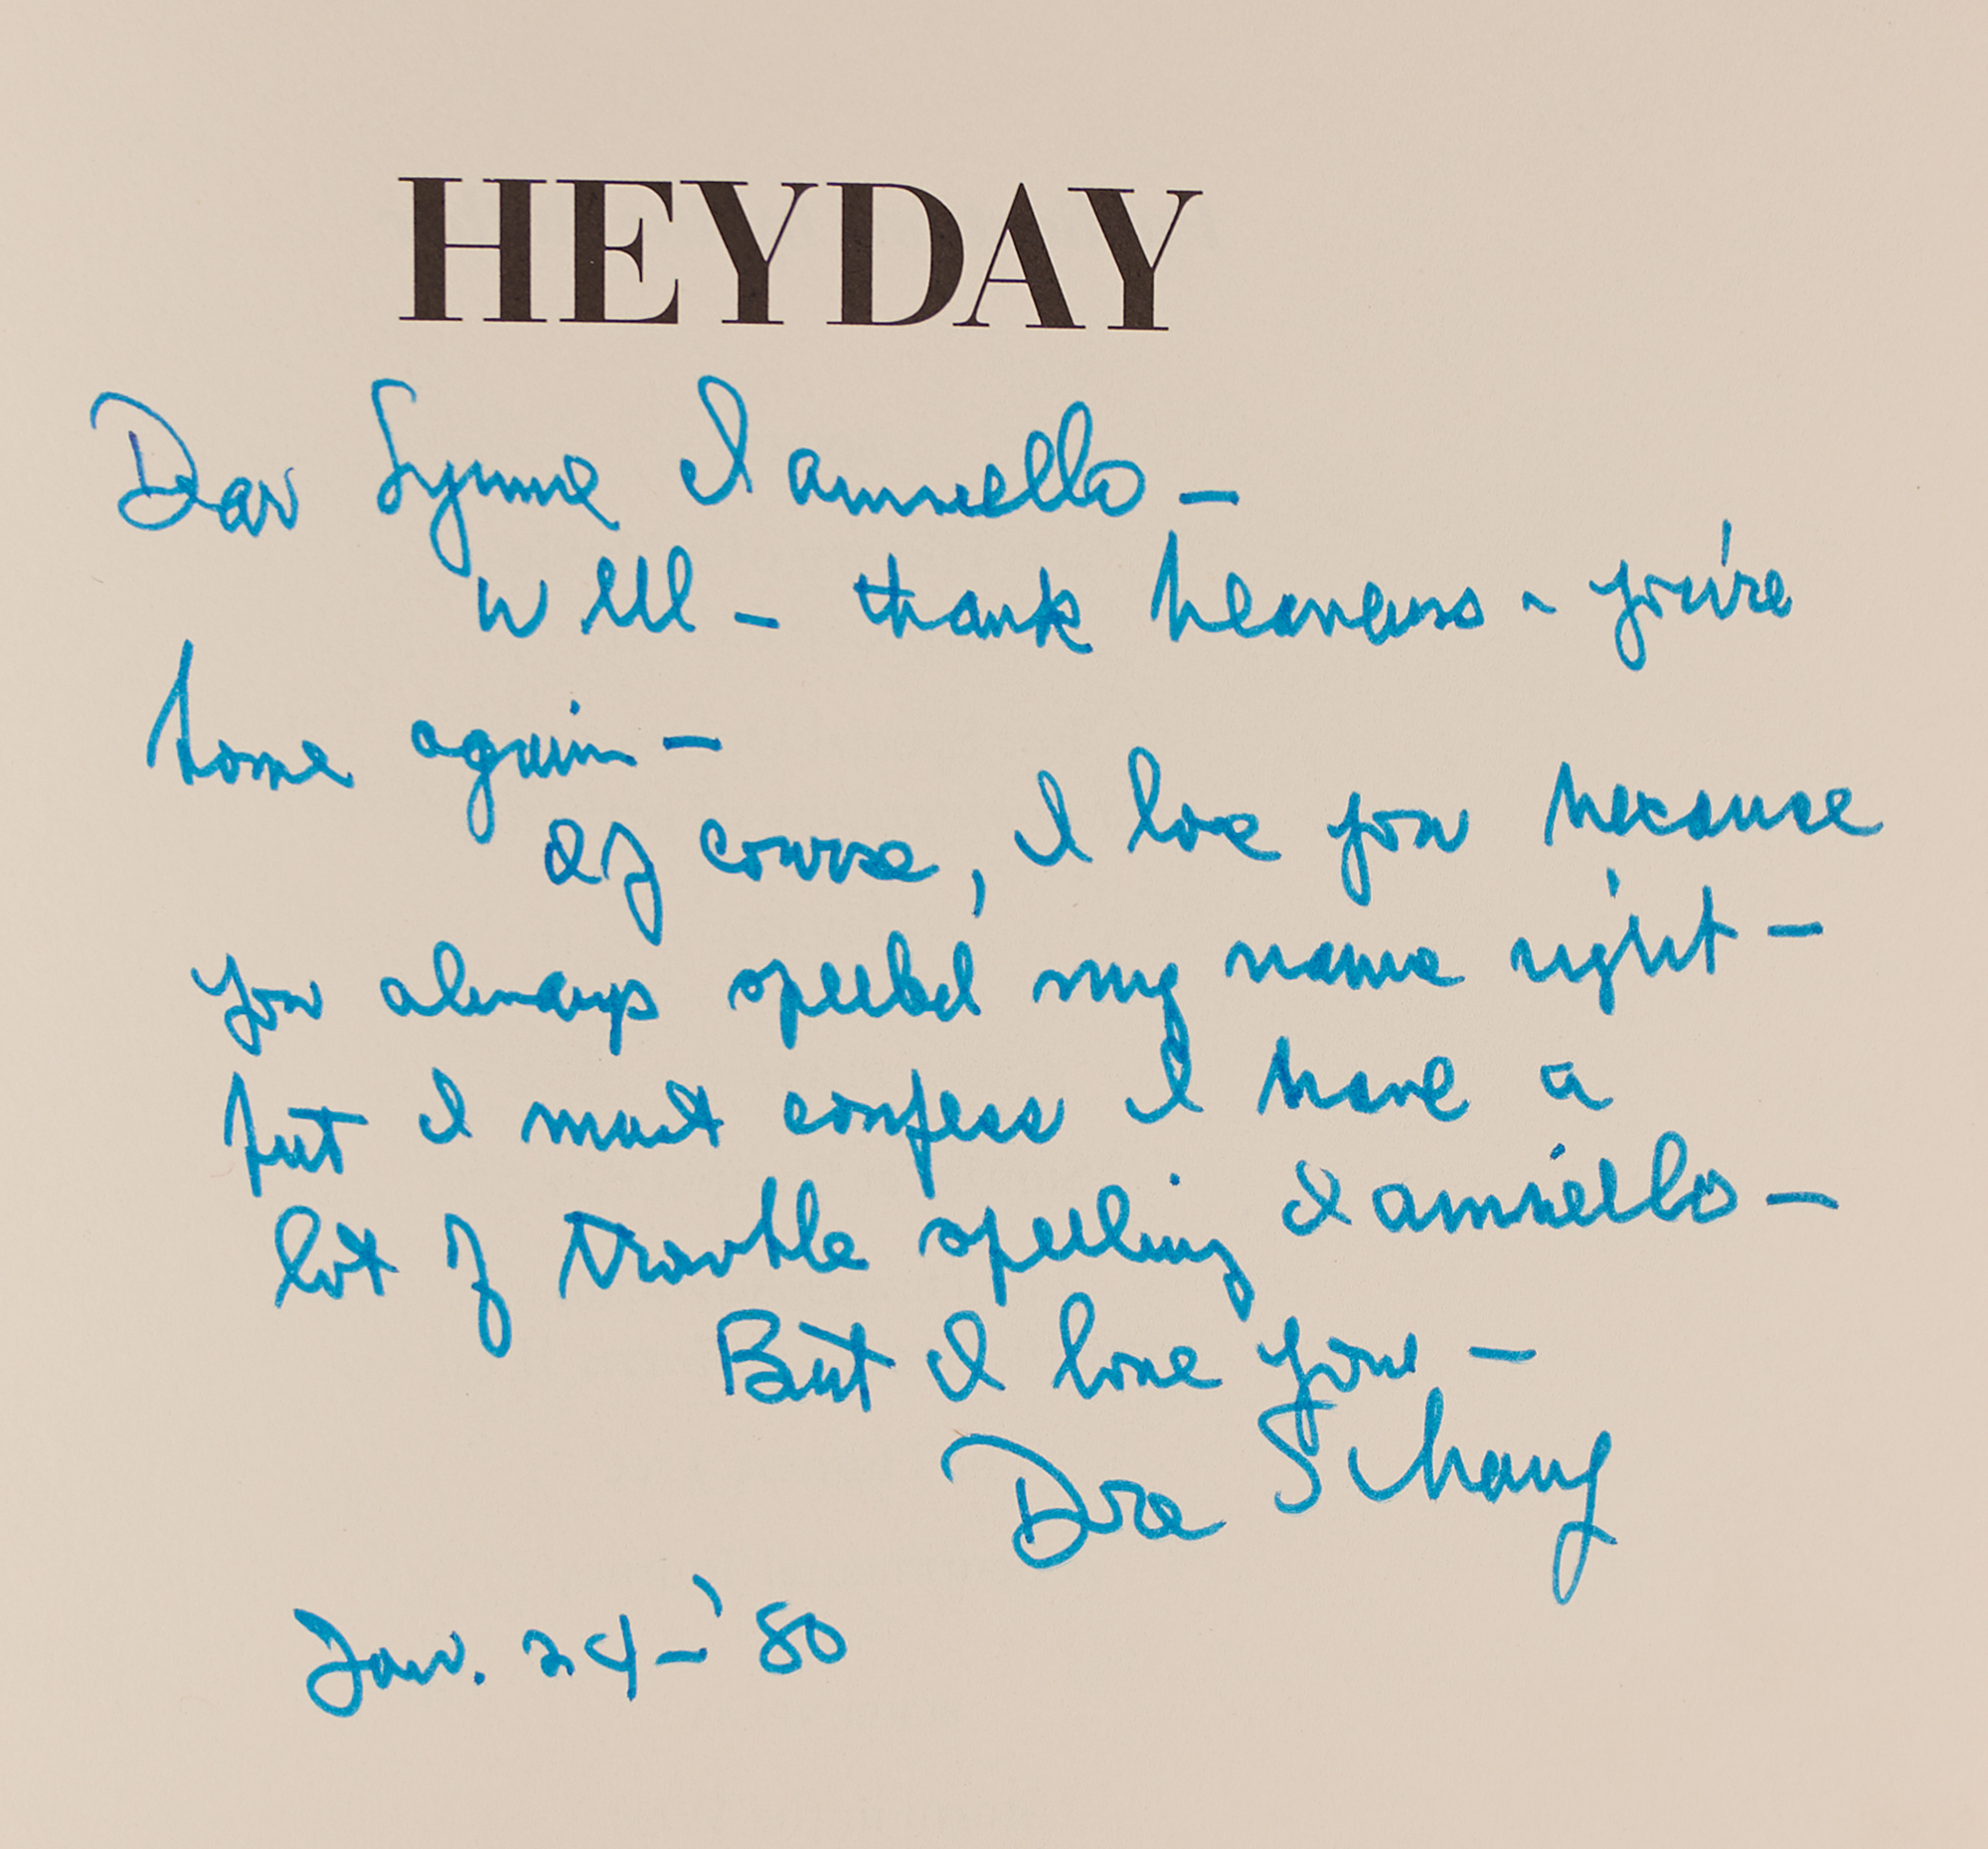 HEYDAY
Dear Lynne Ianniello —
Well — thank heavens - you're
home again —
Of course, I love you because
you always spelled my name right —
but I must confess I have a
lot of trouble spelling Ianniello —
But I love you —
Dore Schary
Jan. 24 - '80